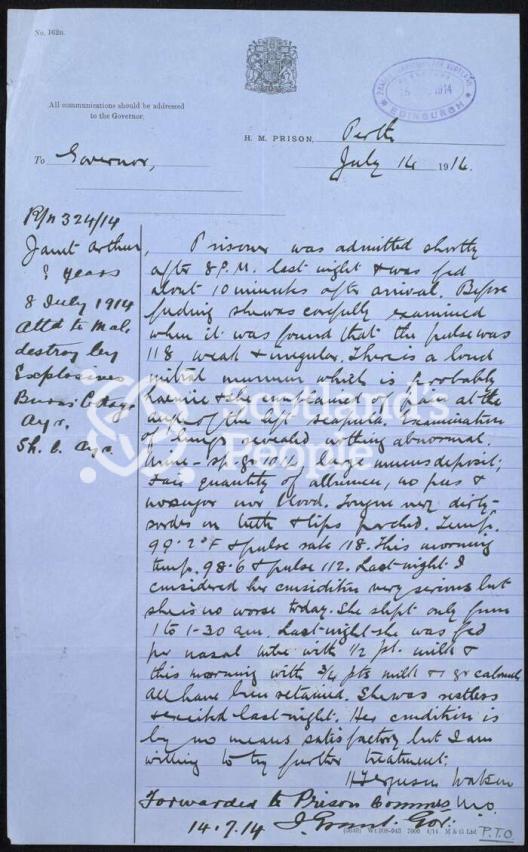 No. 162n.
All communications should be addressed
to the Governor.
H. M. PRISON, Perth
July 14 1914.
To Governor,
EDINBURGH
1914
R/n 324/14
Janet Arthur,
? years
8 July 1914
Attd to Mal.
destroy by
Explosives
Burns' Cottage
Ayr.
Sh. C. Ayr.
Prisoner was admitted shortly
after 8 P.M. last night & was fed
about 10 minutes after arrival. Before
feeding she was carefully examined
when it was found that the pulse was
118 weak & irregular. There is a loud
mitral murmur which is probably
haemic & she complained of pain at the
angle of the left scapula. Examination
of lungs revealed nothing abnormal.
Urine - sp. gr. 1014, large mucus deposit;
fair quantity of albumen, no pus &
no sugar nor blood. Tongue very dirty -
sordes on teeth & lips parched. Temp.
99.2°F & pulse rate 118. This morning
temp. 98.6 & pulse 112. Last night I
considered her condition very serious but
she is no worse today. She slept only from
1 to 1-30 a.m. Last night she was fed
per nasal tube with 1/2 pt. milk &
this morning with 3/4 pts milk & 1 gr calomel
all have been retained. She was restless
& excited last night. Her condition is
by no means satisfactory but I am
willing to try further treatment.
H Ferguson Watson
M.O.
Forwarded to Prison Commrs
14.7.14 J. Grant. Gov.
7000 4/14 M & G Ltd
P.T.O
Scotland's
People